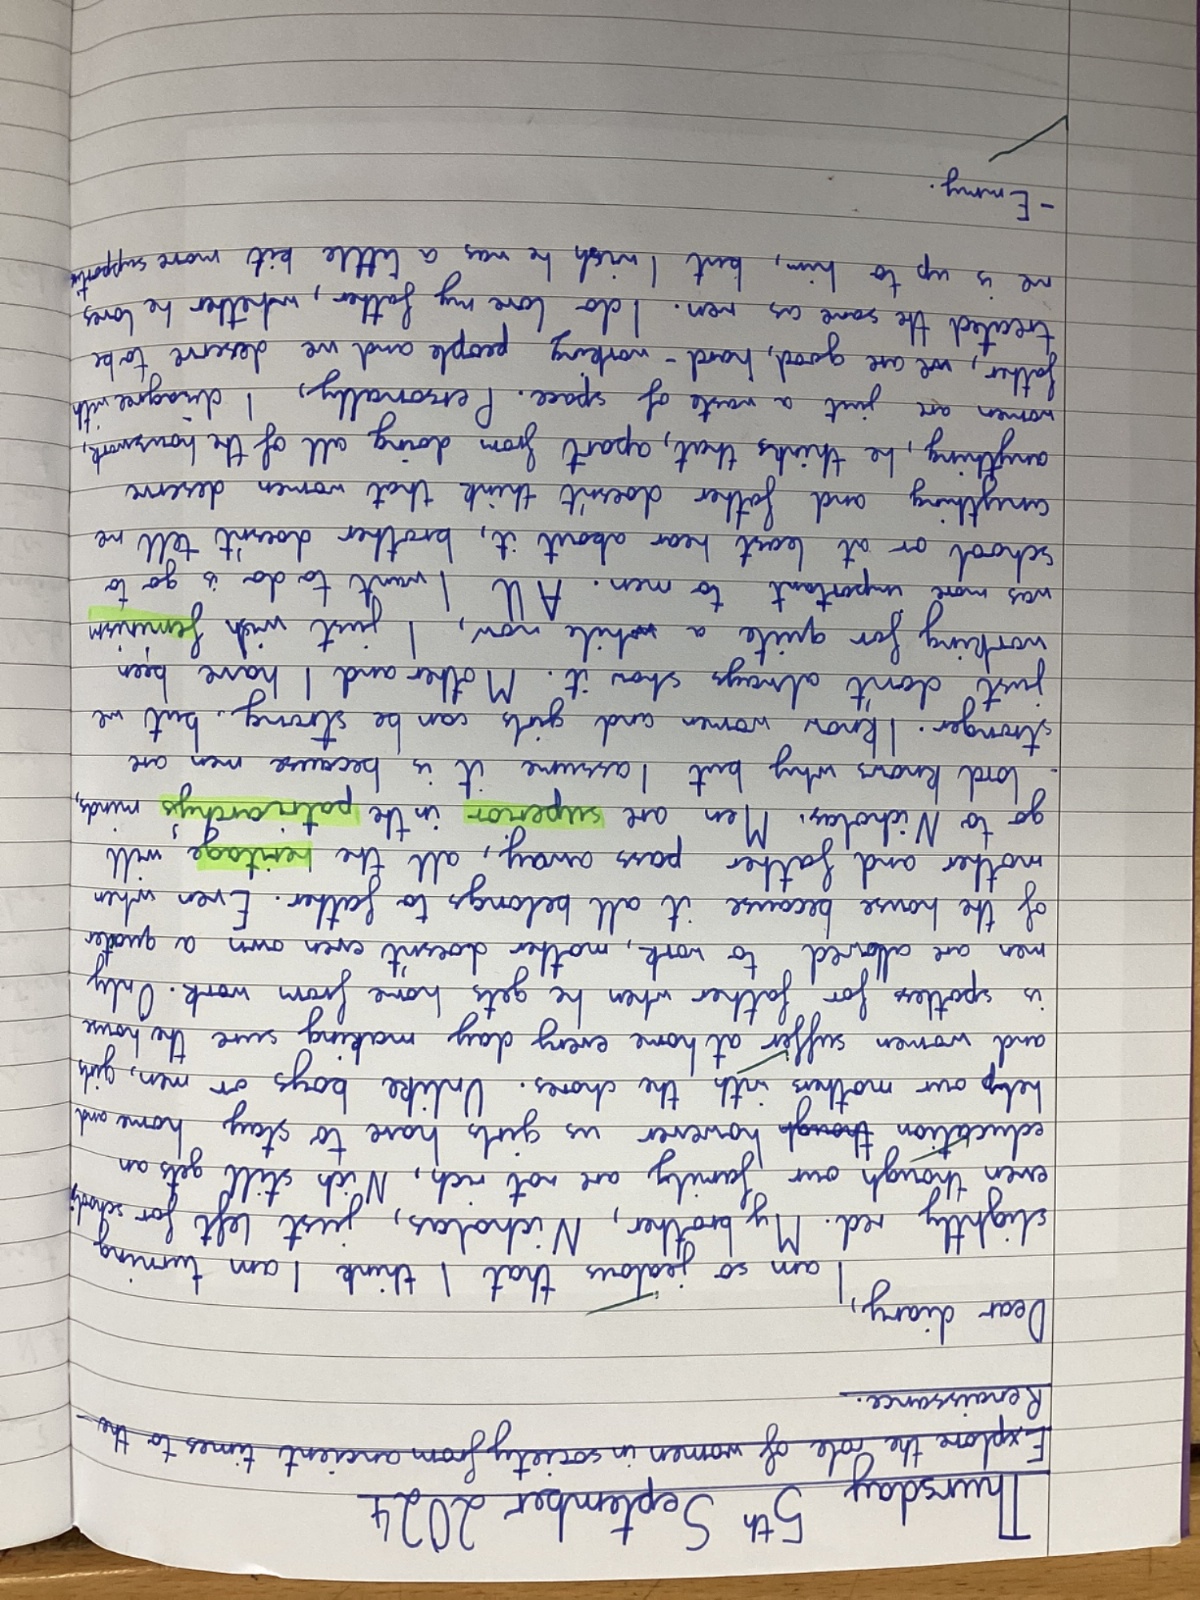 Thursday 5th September 2024
Explore the role of women in society from ancient times to the
Renaissance.
Dear diary,
I am so jealous that I think I am turning
slightly red. My brother, Nicholas, just left for school,
even though our family are not rich, Nich still gets an
education though however us girls have to stay home and
help our mothers with the chores. Unlike boys or men, girls
and women suffer at home every day making sure the house
is spotless for father when he gets home from work. Only
men are allowed to work, mother doesn't even own a quater
of the house because it all belongs to father. Even when
mother and father pass away, all the heritage, will
go to Nicholas. Men are superior in the patriarchys' minds,
lord knows why but I assume it is because men are
stronger. I know women and girls can be strong, but we
just don't always show it. Mother and I have been
working for quite a while now, I just wish feminism
was more important to men. All I want to do is go to
school or at least hear about it, brother doesn't tell me
anything and father doesn't think that women deserve
anything, he thinks that, apart from doing all of the housework,
women are just a waste of space. Personally, I disagree with
father, we are good, hard-working people and we deserve to be
treated the same as men. I do love my father, whether he loves
me is up to him, but I wish he was a little bit more supportive
- Emmy.